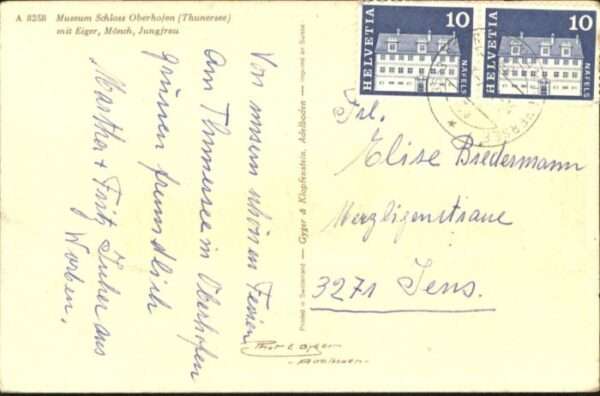 A 8258 Museum Schloss Oberhofen (Thunersee)
mit Eiger, Mönch, Jungfrau
Von unsern schönen Ferien
am Thunersee in Oberhofen
grüssen freundlich
Martha + Fritz Zuher aus
Worben.
Printed in Switzerland — Gyger & Klopfenstein, Adelboden — Imprimé en Suisse
HELVETIA 10 NÄFELS
HELVETIA 10 NÄFELS
Frl.
Elise Biedermann
Merzligenstrasse
3271 Jens.
Phot. E. Gyger
Adelboden